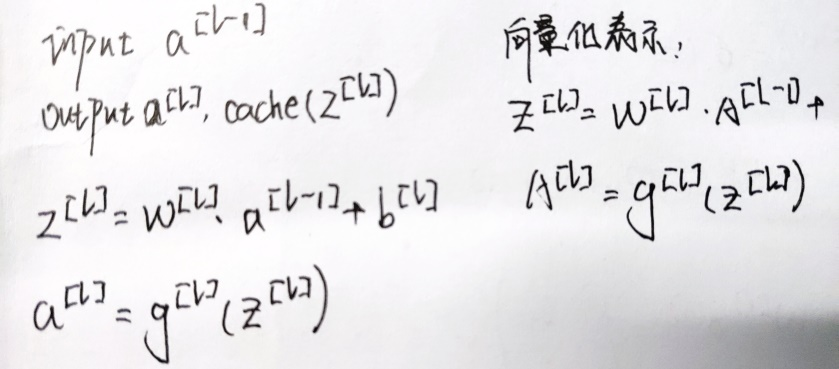 input a^[l-1]
output a^[l], cache(z^[l])
z^[l] = w^[l]. a^[l-1] + b^[l]
a^[l] = g^[l](z^[l])
向量化表示:
Z^[l] = W^[l] · A^[l-1] +
A^[l] = g^[l](Z^[l])